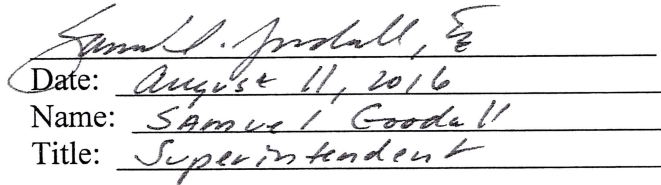 Samuel. Goodall,
Date: August 11, 2016
Name: Samuel Goodall
Title: Superintendent